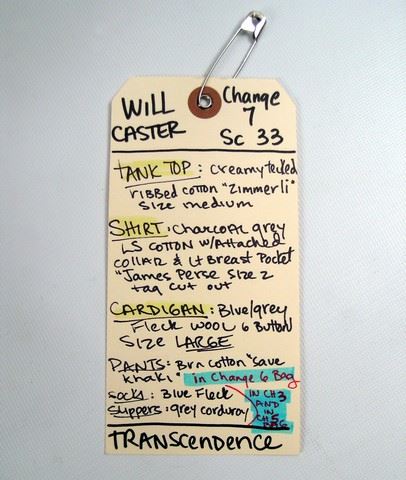 WILL CASTER
Change 7
Sc 33
TANK TOP: creamy tecked
ribbed cotton "Zimmerli"
Size medium
SHIRT: CHARCOAL grey
LS COTTON w/Attached
COLLAR & Lt Breast Pocket
"James Perse Size 2
tag cut out
CARDIGAN: Blue/grey
Fleck WOOL 6 Button
SIZE LARGE
PANTS: Brn cotton "save
khaki" in Change 6 Bag
SOCKS: Blue Fleck
slippers: grey corduroy
IN CH 3
AND
IN
CH 5
BAG
TRANSCENDENCE